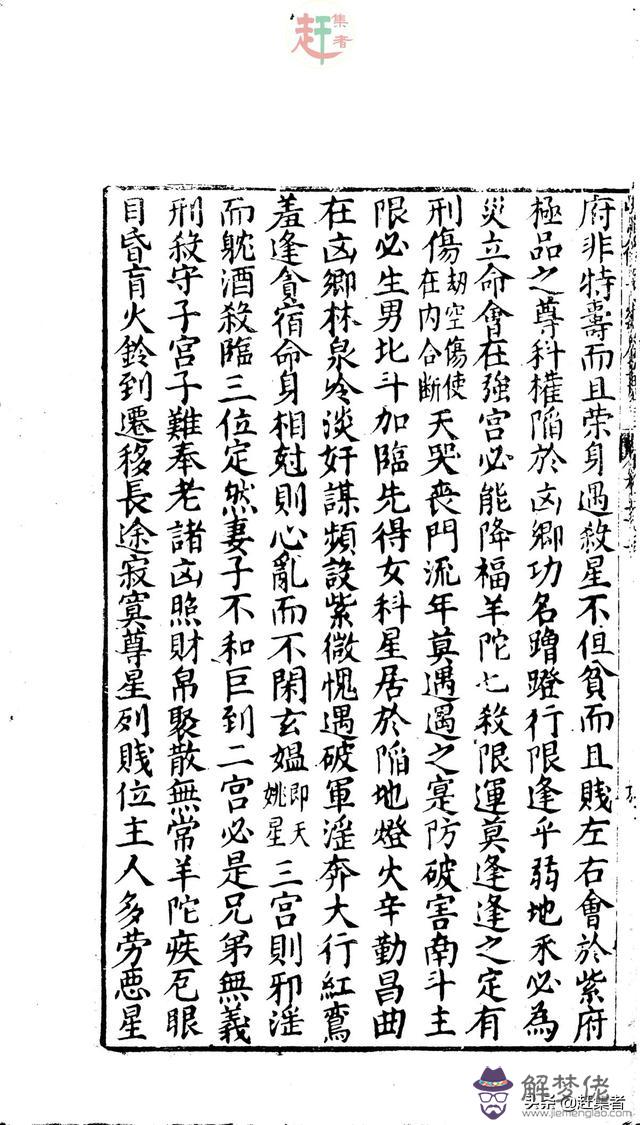 赶集者
府非特壽而且荣身遇殺星不但貧而且賎左右會於紫府
極品之尊科權陥於凶鄉功名蹭蹬行限逢乎弱地禾必為
災立命會在強宮必能降福羊陀七殺限運莫逢逢之定有
刑傷劫空傷使在内合断天哭喪門流年莫遇遇之寔防破害南斗主
限必生男北斗加臨先得女科星居於陥地燈火辛勤昌曲
在凶鄉林泉冷淡奸謀頻設紫微愧遇破軍淫奔大行紅鸞
羞逢貪宿命身相尅則心亂而不閑玄媪即天姚星三宮則邪淫
而躭酒殺臨三位定然妻子不和巨到二宮必是兄弟無義
刑殺守子宮子難奉老諸凶照財帛聚散無常羊陀疾厄眼
目昏盲火鈴到遷移長途寂寞尊星列賎位主人多劳恶星
解梦佬
www.jiemenglao.com
头条@赶集者